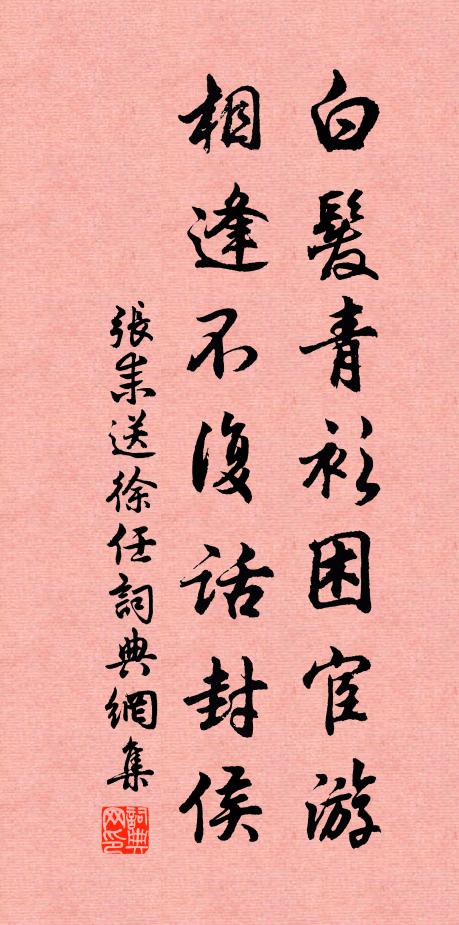 白髮青衫困宦游
相逢不復話封侯
張耒送徐任詞典網集
詞典网印